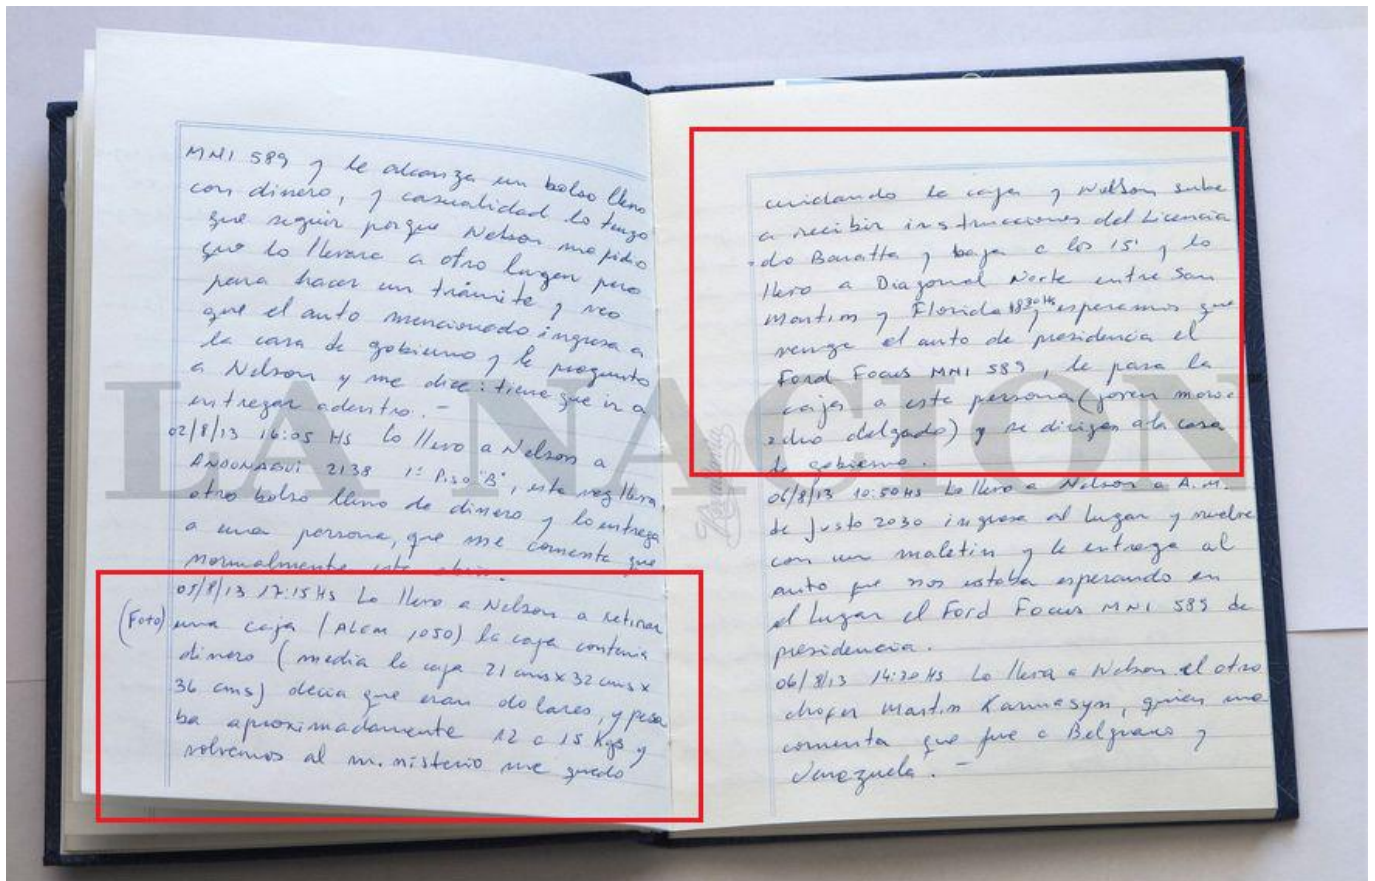 MNI 589 y le alcanza un bolso lleno
con dinero, y casualidad lo tengo
que seguir porque Nelson me pidio
que lo llevara a otro lugar pero
para hacer un trámite y veo
que el auto mencionado ingresa a
la casa de gobierno y le pregunto
a Nelson y me dice: tiene que ir a
entregar adentro.-
02/8/13 16:05 Hs Lo llevo a Nelson a
ANDONAGUI 2138 1º Piso "B", esta vez lleva
otro bolso lleno de dinero y lo entrega
a una persona, que me comenta que
normalmente esta
05/8/13 17:15 Hs Lo llevo a Nelson a retirar
(Foto) una caja (ALEM 1050) la caja contenia
dinero (media la caja 21 cms x 32 cms x
36 cms) decia que eran dolares, y pesa
ba aproximadamente 12 a 15 Kgs y
volvemos al ministerio me quedo
cuidando la caja y Nelson sube
a recibir instrucciones del Licencia
do Baratta y baja a los 15' y lo
llevo a Diagonal Norte entre San
Martin y Florida 18:30 Hs y esperamos que
venga el auto de presidencia el
Ford Focus MNI 589, le pasa la
caja a esta persona (joven moro
cho delgado) y se dirigen a la casa
de gobierno.
06/8/13 10:50 Hs Lo llevo a Nelson a A.M.
de Justo 2030 ingresa al lugar y vuelve
con un maletin y le entrega al
auto que nos estaba esperando en
el lugar el Ford Focus MNI 589 de
presidencia.
06/8/13 14:20 Hs Lo lleva a Nelson el otro
chofer Martin Karmasyn, quien me
comenta que fue a Belgrano y
Venezuela.-
LA NACION